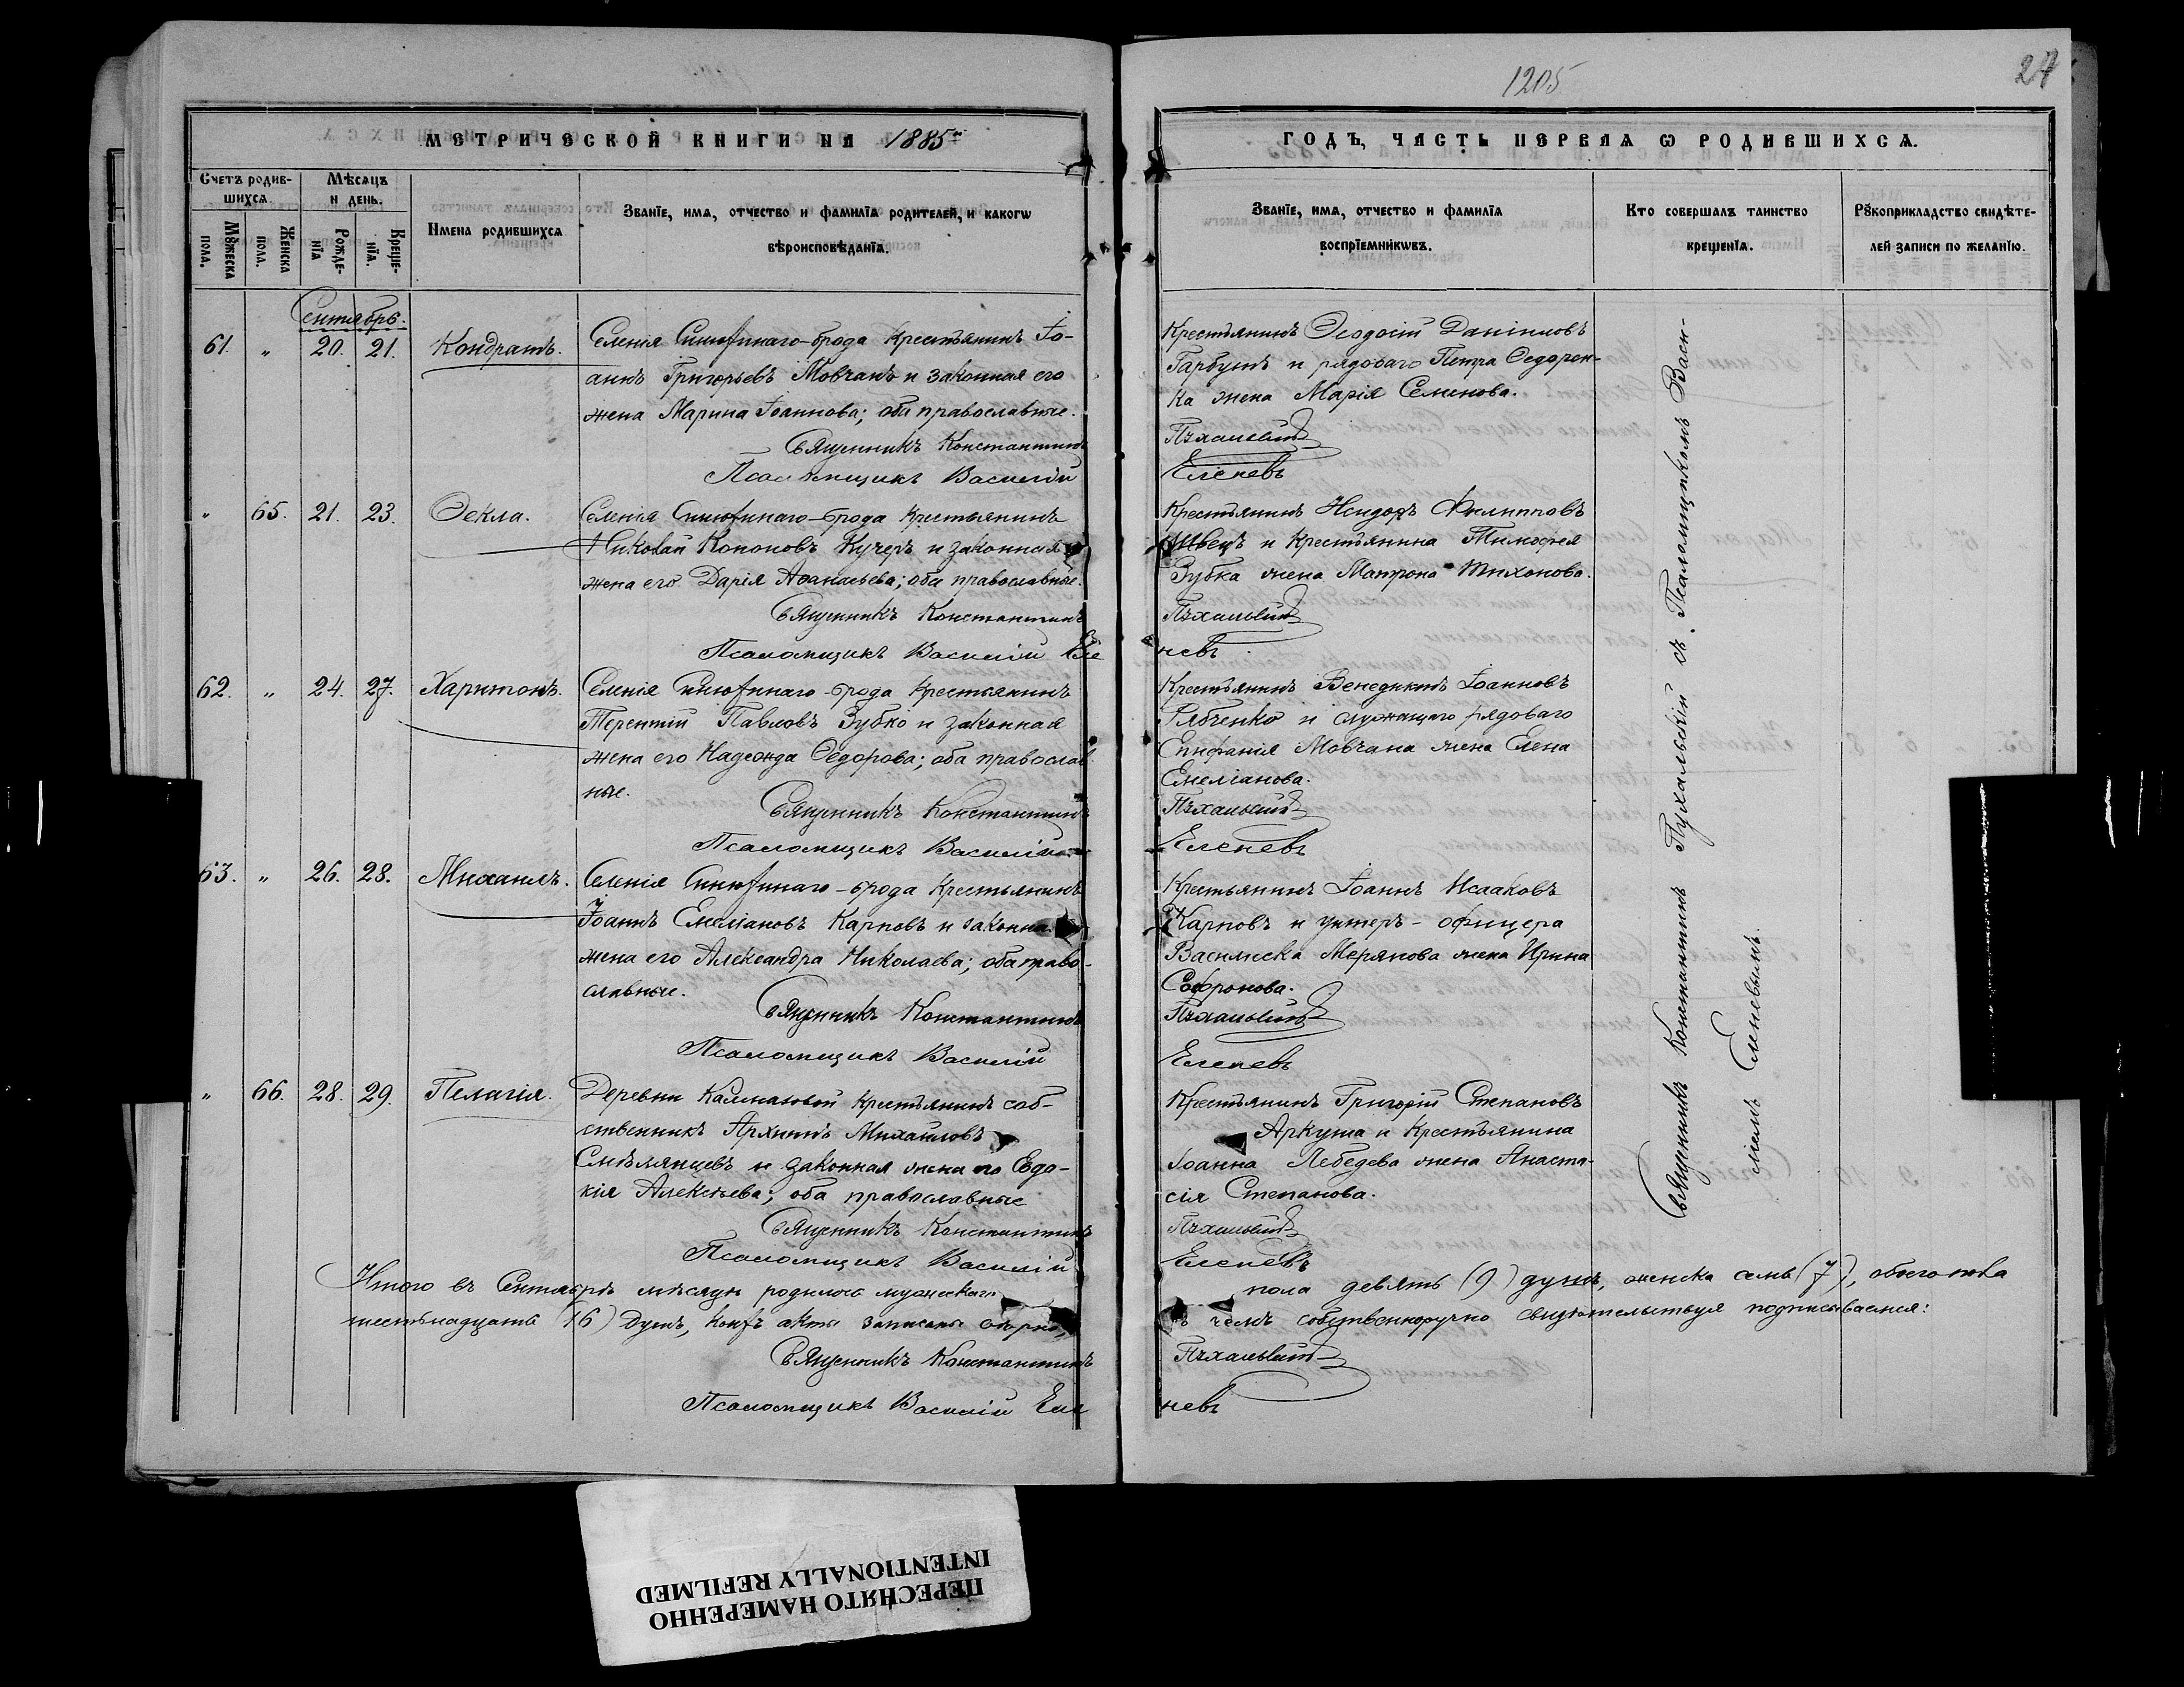 1205
24
МЕТРИЧЕСКОЙ КНИГИ НА 1885й
ГОДЪ, ЧАСТЬ ПЕРВАЯ Ѡ РОДИВШИХСѦ.
Счетъ родив-
шихсѧ
Мѣсѧцъ
и день.
Мꙋжеска
пола.
Женска
пола.
Рожде-
нїѧ
Креще-
нїѧ.
Имена родившихсѧ
Званїе, имѧ, отчество и фамилїѧ родителей, и какогѡ
вѣроисповѣданїѧ.
Званїе, имѧ, отчество и фамилїѧ
воспрїемникѡвъ.
Кто совершалъ таинство
крещенїѧ.
Рꙋкоприкладство свидѣте-
лей записи по желанїю.
Сентябрь.
61. „ 20. 21. Кондратъ.
Селенія Синюхинаго-брода крестьянинъ Іо-
аннъ Григорьевъ Мовчанъ и законная его
жена Марина Іоаннова; оба православные.
Священникъ Константинъ
Псаломщикъ Василій
Крестьянинъ Ѳеодосій Даніиловъ
Гарбузъ и рядоваго Петра Ѳедорен-
ка жена Марія Семенова.
Пухальскій
Еленевъ
„ 65. 21. 23. Ѳекла.
Селенія Синюхинаго-брода крестьянинъ
Николай Кононовъ Кучеръ и законная
жена его Дарія Аѳанасьева; оба православные.
Священникъ Константинъ
Псаломщикъ Василій Еле
Крестьянинъ Исидоръ Филипповъ
Швецъ и крестьянина Тимофея
Зубка жена Матрона Тихонова.
Пухальскій
невъ
62. „ 24. 27. Харитонъ.
Селенія Синюхинаго-брода крестьянинъ
Терентій Павловъ Зубко и законная
жена его Надежда Ѳедорова; оба православ
ные.
Священникъ Константинъ
Псаломщикъ Василій
Крестьянинъ Венедиктъ Іоанновъ
Рябченко и служащаго рядоваго
Епифанія Мовчана жена Елена
Емеліанова.
Пухальскій
Еленевъ
63. „ 26. 28. Михаилъ.
Селенія Синюхинаго-брода крестьянинъ
Іоаннъ Емеліановъ Карповъ и законная
жена его Александра Николаева; оба право-
славные.
Священникъ Константинъ
Псаломщикъ Василій
Крестьянинъ Іоаннъ Исааковъ
Карповъ и унтеръ-офицера
Василиска Мерянова жена Ирина
Софронова.
Пухальскій
Еленевъ
„ 66. 28. 29. Пелагія.
Деревни Калмазовой крестьянинъ соб-
ственникъ Архипъ Михаиловъ
Смѣлянцевъ и законная жена его Евдо-
кія Алексѣева; оба православные
Священникъ Константинъ
Псаломщикъ Василій
Крестьянинъ Григорій Степановъ
Аркуша и крестьянина
Іоанна Лебедева жена Анаста-
сія Степанова.
Пухальскій
Еленевъ
Священникъ Константинъ Пухальскій съ Псаломщикомъ Васи-
ліемъ Еленевымъ.
Итого въ Сентябрѣ мѣсяцѣ родилось мужескаго пола девять (9) душъ, женска семь (7), обоего пола
шестьнадцать (16) душъ, коихъ акты записаны вѣрно, въ чемъ собственноручно свидѣтельствуя подписываемся:
Священникъ Константинъ Пухальскій
Псаломщикъ Василій Еленевъ
ПЕРЕСНЯТО НАМЕРЕННО
INTENTIONALLY REFILMED